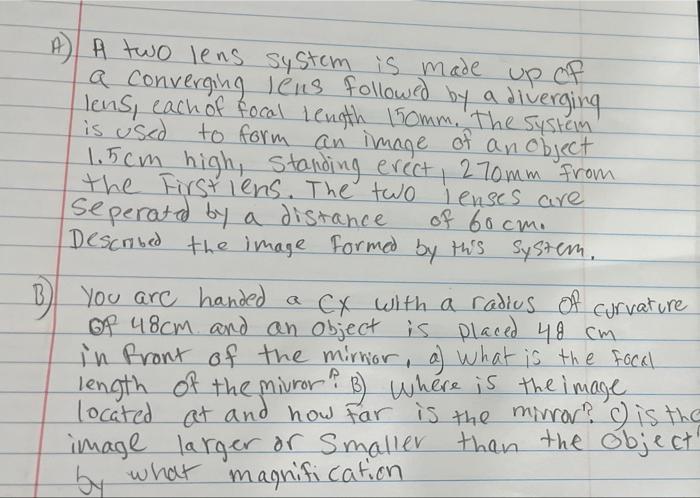 A) A two lens system is made up of
a converging lens followed by a diverging
lens, each of focal length 150mm. The system
is used to form an image of an object
1.5cm high, standing erect, 270mm from
the First lens. The two lenses are
seperated by a distance of 60cm.
Described the image formed by this system.
B) You are handed a CX with a radius of curvature
of 48cm and an object is placed 48 cm
in front of the mirrior, a) What is the focal
length of the mirror? B) Where is the image
located at and how far is the mirror? c) is the
image larger or Smaller than the object
by what magnification